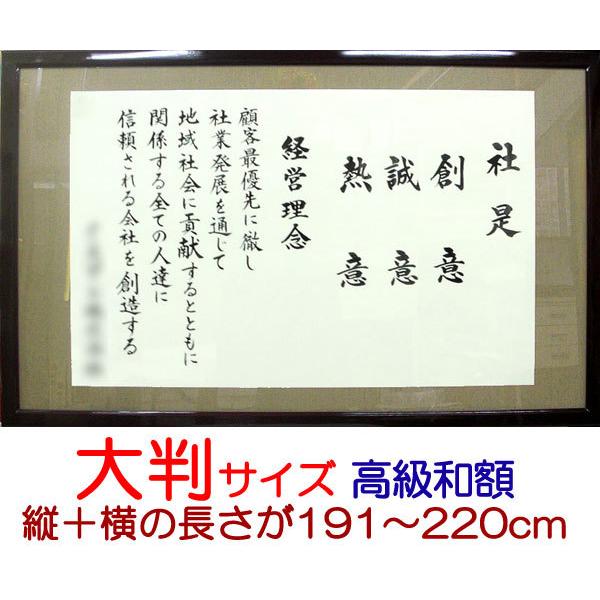 社是
創意
誠意
熱意
経営理念
顧客最優先に徹し
社業発展を通じて
地域社会に貢献するとともに
関係する全ての人達に
信頼される会社を創造する
大判サイズ 高級和額
縦＋横の長さが191～220cm